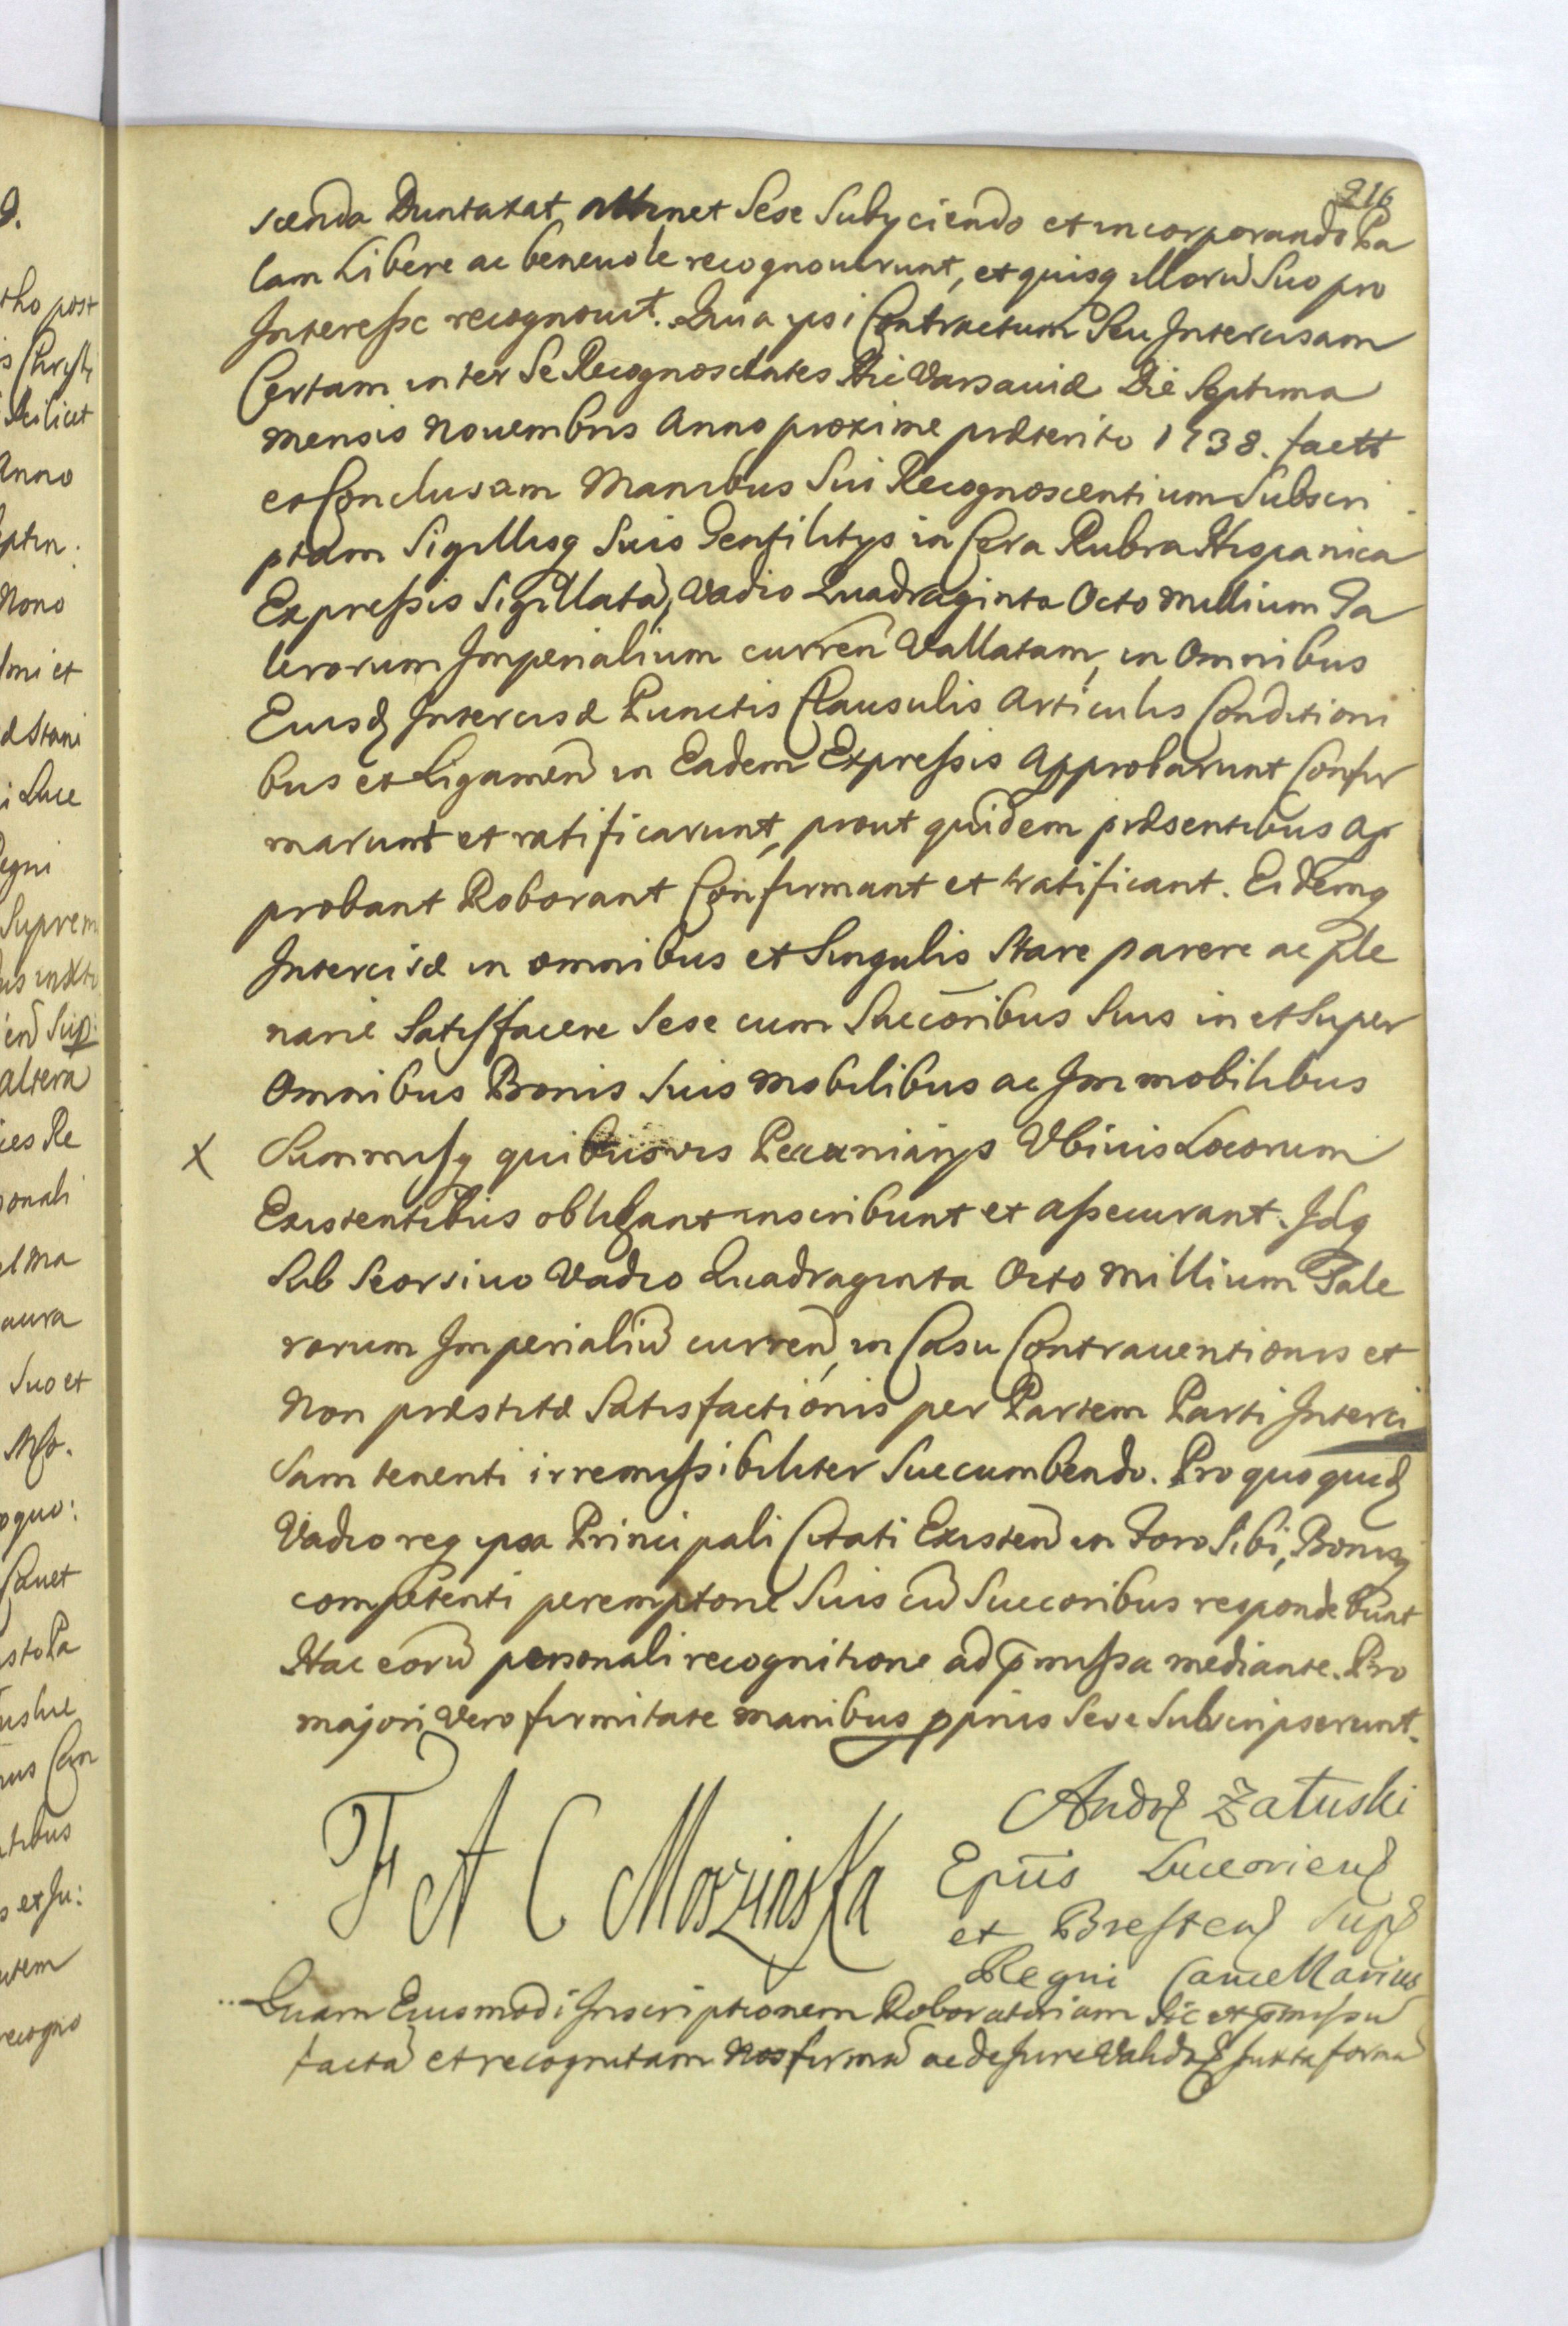 216
scenda Duntaxat attinet Sese Subyciendo et incorporando Pa
lam Libere ac beneuole recognouerunt, et quisq illorũ Suo pro
Interesse recognouit. Quia ipsi Contractum Seu Intercisam
Certam inter Se Recognoscentes Hic Varsauiæ Die Septima
mensis Nouembris Anno proxime præterito 1738. factt
et Conclusam Manibus Sui Recognoscentium Subscri
ptam Sigillisq Suis Gentilitys in Cera Rubra Hispanica
Expressis Sigillatã, Vadio Quadraginta Octo Millium Ta
lerorum Imperialium curren̄ Vallatam, in Omnibus
Eiusd Intercisæ Punctis Clausulis Articulis Conditioni
bus et Ligamen̄ in Eadem Expressis Approbarunt Confir
marunt et ratificarunt, prout quidem præsentibus ap
probant Roborant Confirmant et ratificant. Eidemq
Intercisæ in omnibus et Singulis Stare parere ac ple
narie Satisfacere Sese cum Succoribus Suis in et Super
Omnibus Bonis Suis mobilibus ac Immobilibus
X Summisq quibusuis Pecuniarys Vbiuis Locorum
Existentibus obligant inscribunt et assecurant. Idq
Sub Seorsiuo Vadio Quadraginta Octo Millium Tale
rorum Imperialiũ curren̄, in Casu Contrauentionis et
Non præstitæ Satisfactionis per Partem Parti Interci
sam tenenti irremissibiliter Succumbendo. Pro quo quid
Vadio req ipsa Principali Citati Existen̄ in Foro Sibi, Bonisq
competenti peremptorie Suis cũ Succoribus respondebunt
Hac eorũ personali recognitione ad p̄missa mediante. Pro
majori Vero firmitate manibus pprijs Sese Subscripserunt.
F A C Moszinska
Andr Załuski
Epūs Luceorien
et Bresten Sup
Regni Cancellarius
Quam Eiusmodi Inscriptionem Roboratoriam Sic et p̄missũ
factã et recognitam Nos firmã ac de Jure Validã Juxta formã